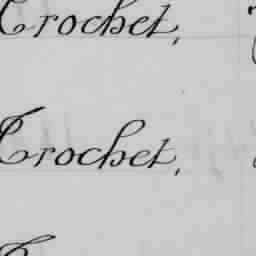 Crochet,
Crochet,